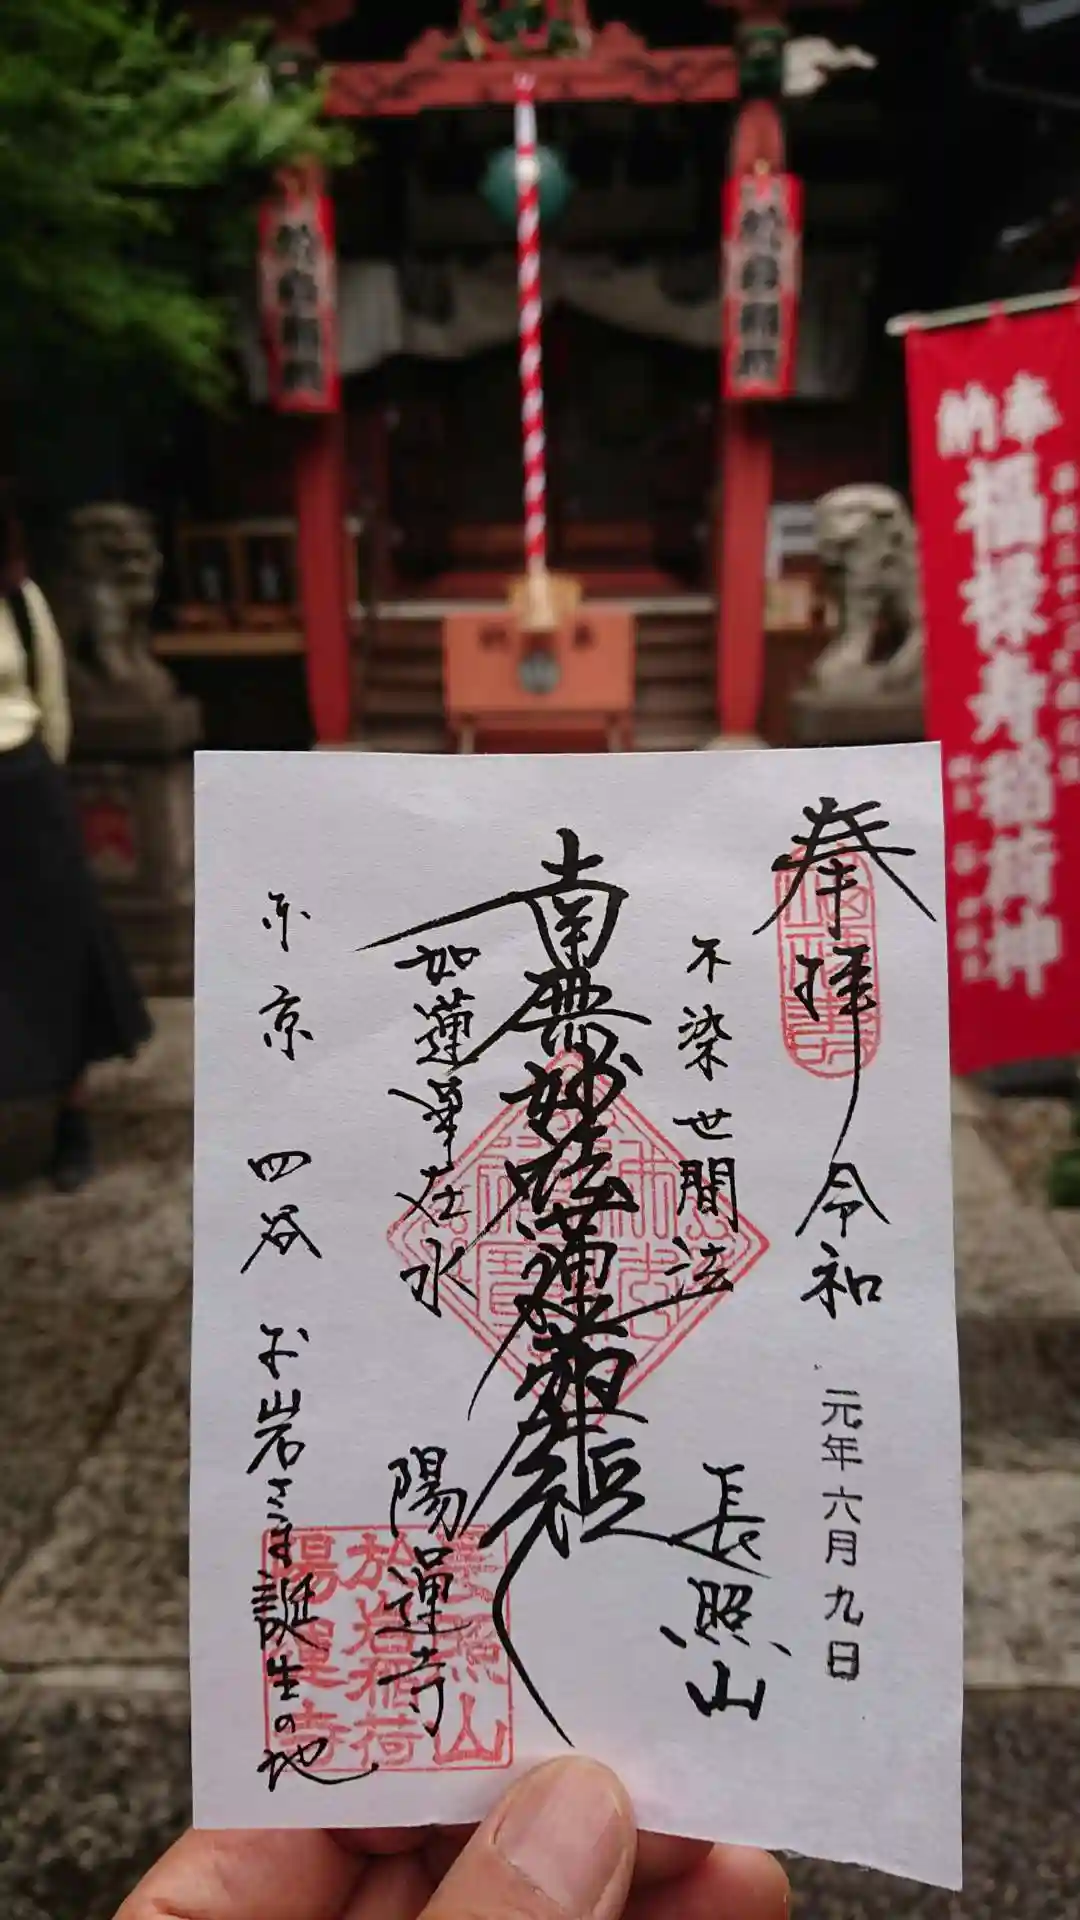 奉拝
令和
元年六月九日
不染世間法
長照山
南無妙法蓮華経
如蓮華在水
陽運寺
東京 四谷 お岩さま誕生の地
長照山
於岩稲荷
陽運寺
奉納
福禄寿稲荷神